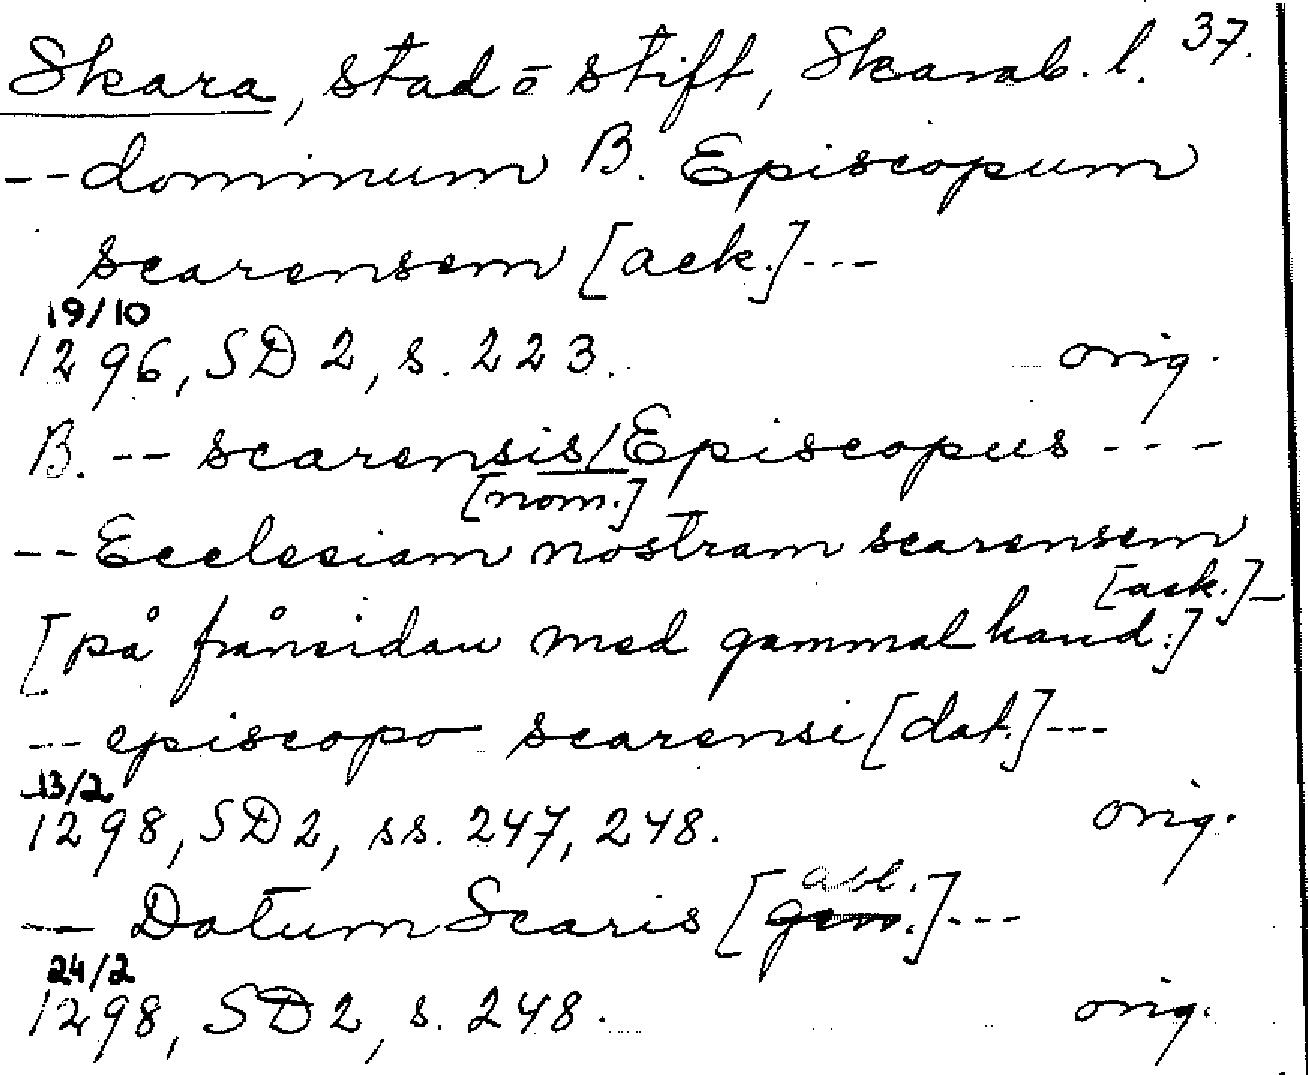 Skara, stad o stift, Skarab. l. 37.
-- dominum B. Episcopum
scarensem [ack.] ---
19/10
1296, SD 2, s. 223. orig.
B. -- scarensis/Episcopus ---
[nom.]
-- Ecclesiam nostram scarensem
[ack.] -
[på frånsidan med gammal hand:]
--- episcopo scarensi [dat.] ---
13/2
1298, SD 2, ss. 247, 248. orig.
abl.
-- Datum Scaris [gen.] ---
24/2
1298, SD 2, s. 248. orig.